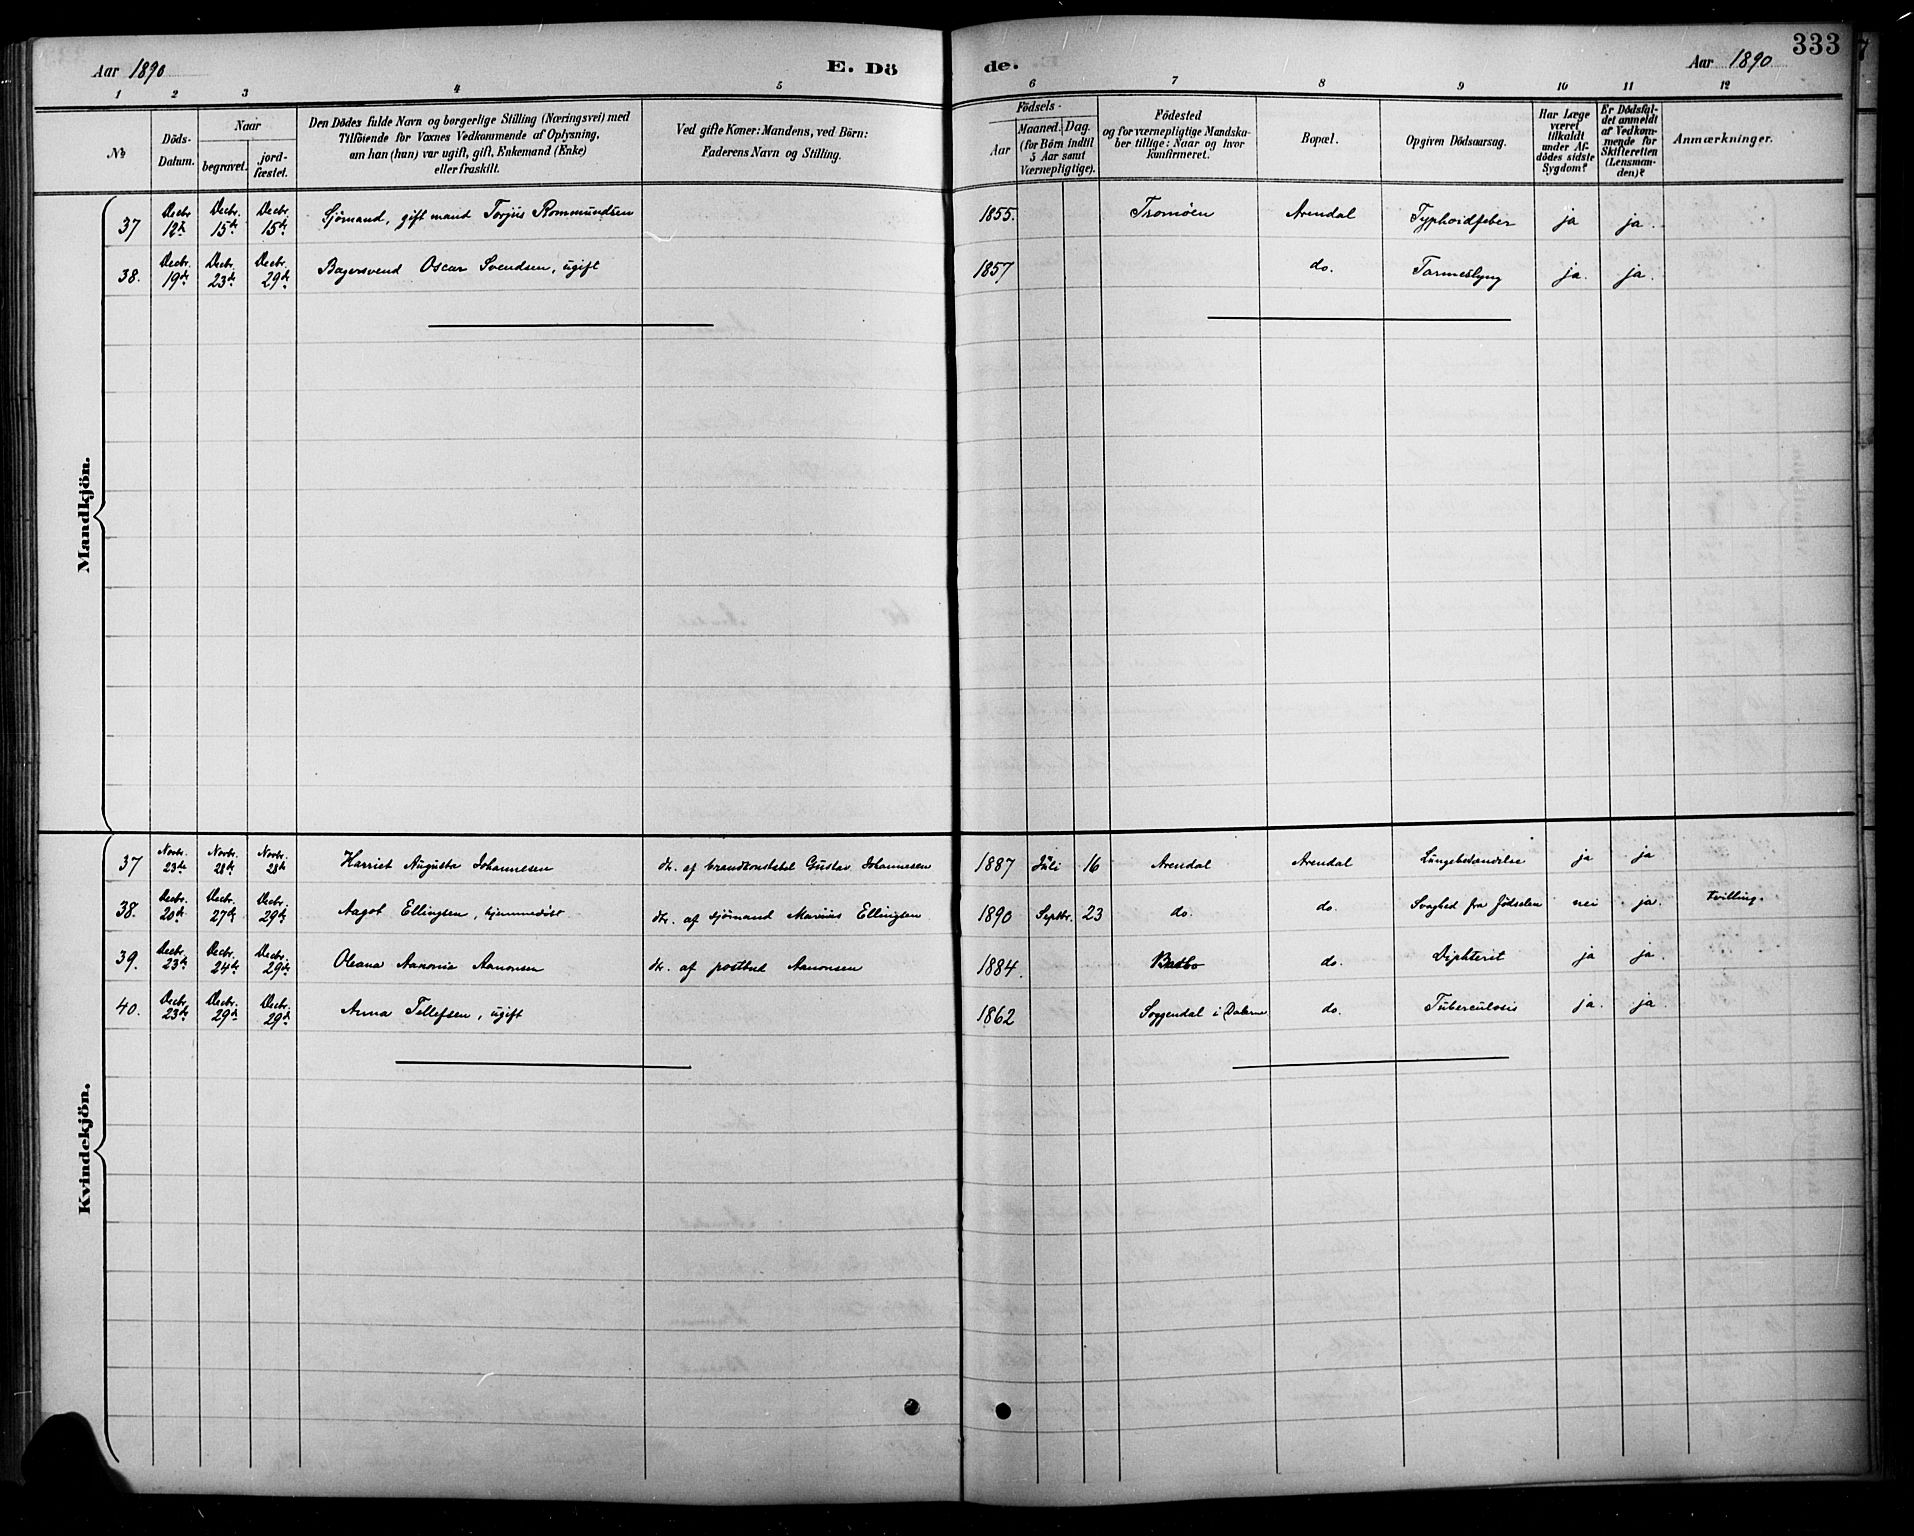 Aar 1890
E. Dö
de.
Aar 1890
333
1 2 3 4 5 6 7 8 9 10 11 12
№
Döds-
Datum.
Naar
begravet.
jord-
fæstet.
Den Dödes fulde Navn og borgerlige Stilling (Næringsvei) med
Tilföiende for Voxnes Vedkommende af Oplysning,
om han (hun) var ugift, gift, Enkemand (Enke)
eller fraskilt.
Ved gifte Koner: Mandens, ved Börn:
Faderens Navn og Stilling.
Födsels-
Aar
Maaned. Dag.
(for Börn indtil
5 Aar samt
Værnepligtige).
Födested
og for værnepligtige Mandska-
ber tillige: Naar og hvor
konfirmeret.
Bopæl.
Opgiven Dödsaarsag.
Har Læge
været
tilkaldt
under Af-
dödes sidste
Sygdom?
Er Dödsfal-
det anmeldt
af Vedkom-
mende for
Skifteretten
(Lensman-
den)?
Anmærkninger.
Mandkjön.
37 Decbr. 12te Decbr. 15de Decbr. 15de Sjömand, gift mand Torjus Rommundsen 1855. Tromöen Arendal Typhoidfeber ja ja.
38. Decbr. 19de Decbr. 23de Decbr. 29de Bagersvend Oscar Svendsen, ugift 1857 do. Tarmeslyng ja. ja.
Kvindekjön.
37 Novbr. 23de Novbr. 28de Novbr. 28de Harriet Augusta Johannesen dtr. af brandkonstabel Gustav Johannesen 1887 Juli 16 Arendal Arendal Lungebetændelse ja ja
38. Decbr. 20de Decbr. 27de Decbr. 29de Aagot Ellingsen, hjemmedøbt dtr. af sjömand Marius Ellingsen 1890 Septbr. 23 do. do. Svaghed fra Fødselen nei ja. tvilling.
39. Decbr. 23de Decbr. 24de Decbr. 29de Oleana Aanonia Aanonsen dtr. af postbud Aanonsen 1884. Barbo do. Diphterit ja ja.
40. Decbr. 23de Decbr. 29de Decbr. 29de Anna Tellefsen, ugift 1862 Soggendal i Dalerne do. Tuberculosis ja. ja.